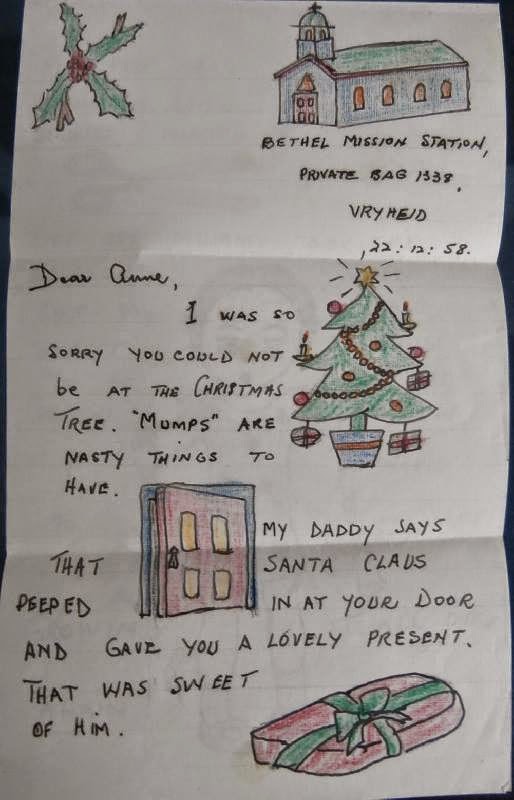 BETHEL MISSION STATION,
PRIVATE BAG 1338,
VRYHEID
22:12:58.
Dear Anne,
I WAS SO
SORRY YOU COULD NOT
be AT THE CHRISTMAS
TREE. "MUMPS" ARE
NASTY THINGS TO
HAVE.
MY DADDY SAYS
THAT SANTA CLAUS
PEEPED IN AT YOUR DOOR
AND GAVE YOU A LOVELY PRESENT.
THAT WAS SWEET
OF HIM.